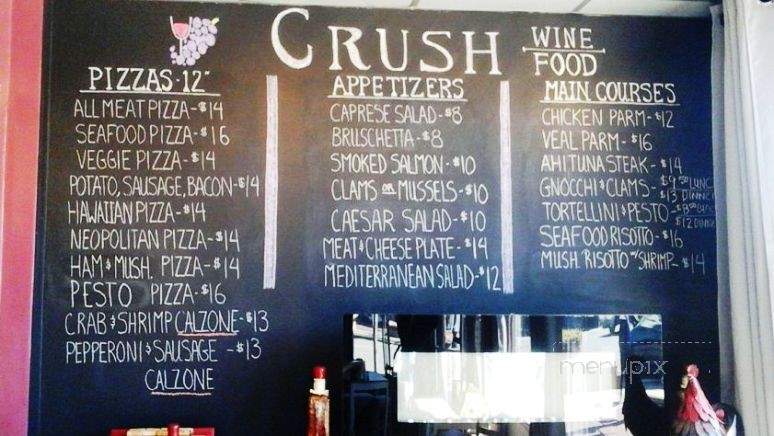 CRUSH
WINE
FOOD
PIZZAS - 12"
ALL MEAT PIZZA - $14
SEAFOOD PIZZA - $16
VEGGIE PIZZA - $14
POTATO, SAUSAGE, BACON - $14
HAWAIIAN PIZZA - $14
NEOPOLITAN PIZZA - $14
HAM & MUSH. PIZZA - $14
PESTO PIZZA - $16
CRAB & SHRIMP CALZONE - $13
PEPPERONI & SAUSAGE - $13
CALZONE
APPETIZERS
CAPRESE SALAD - $8
BRUSCHETTA - $8
SMOKED SALMON - $10
CLAMS OR MUSSELS - $10
CAESAR SALAD - $10
MEAT & CHEESE PLATE - $14
MEDITERRANEAN SALAD - $12
MAIN COURSES
CHICKEN PARM - $12
VEAL PARM - $16
AHI TUNA STEAK - $14
GNOCCHI & CLAMS - $9.50 LUNCH
$13 DINNER
TORTELLINI & PESTO - $8.50
$12 DINNER
SEAFOOD RISOTTO - $16
MUSH RISOTTO W/ SHRIMP - $14
menupix